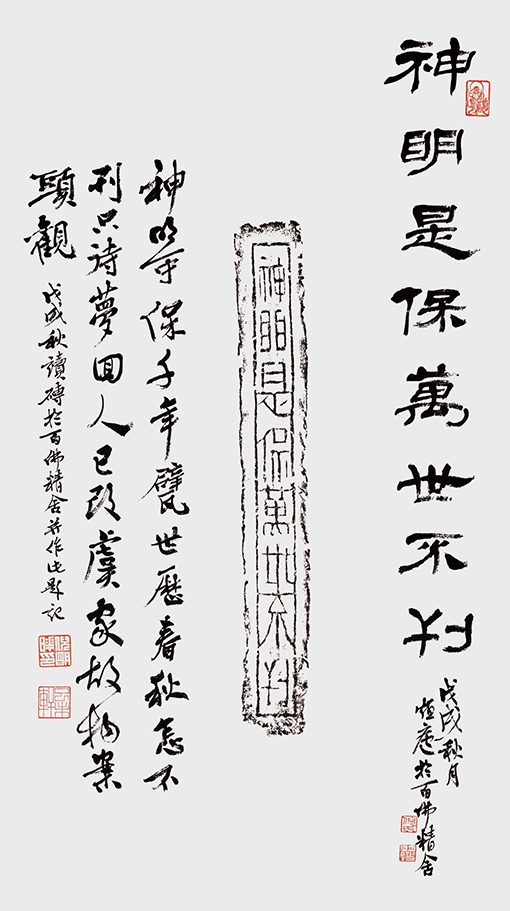 神明是保萬世不刊
戊戌秋月
庵於百佛精舍
神明是保萬世不刊
神明保千年甓世歷春秋怎不
刊只詩夢回人已改虞家故物案
頭觀
戊戌秋讀磚於百佛精舍并作此題記